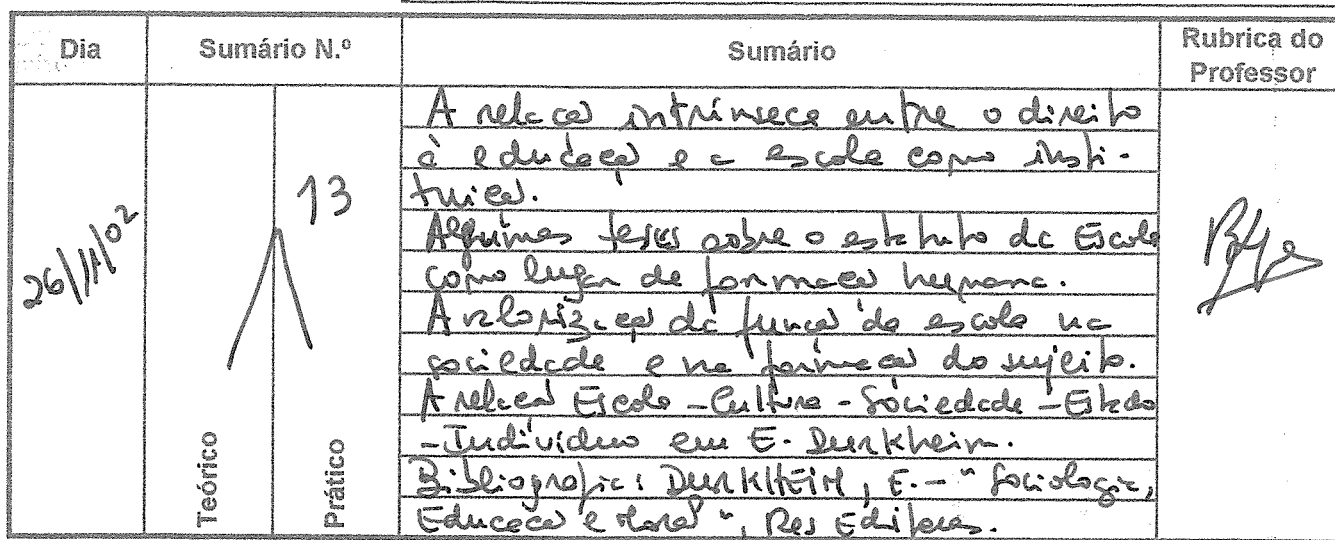 Dia Sumário N.º Sumário Rubrica do Professor
26/11/02
13
Teórico
Prático
A relação intrínseca entre o direito
à educação e a escola como insti-
tuição.
Algumas teses sobre o estatuto da Escola
como lugar de formação humana.
A valorização da função da escola na
sociedade e na formação do sujeito.
A relação Escola - Cultura - Sociedade - Estado
- Indivíduo em E. Durkheim.
Bibliografia: DURKHEIM, E. - "Sociologia,
Educação e Moral", Res Editora.